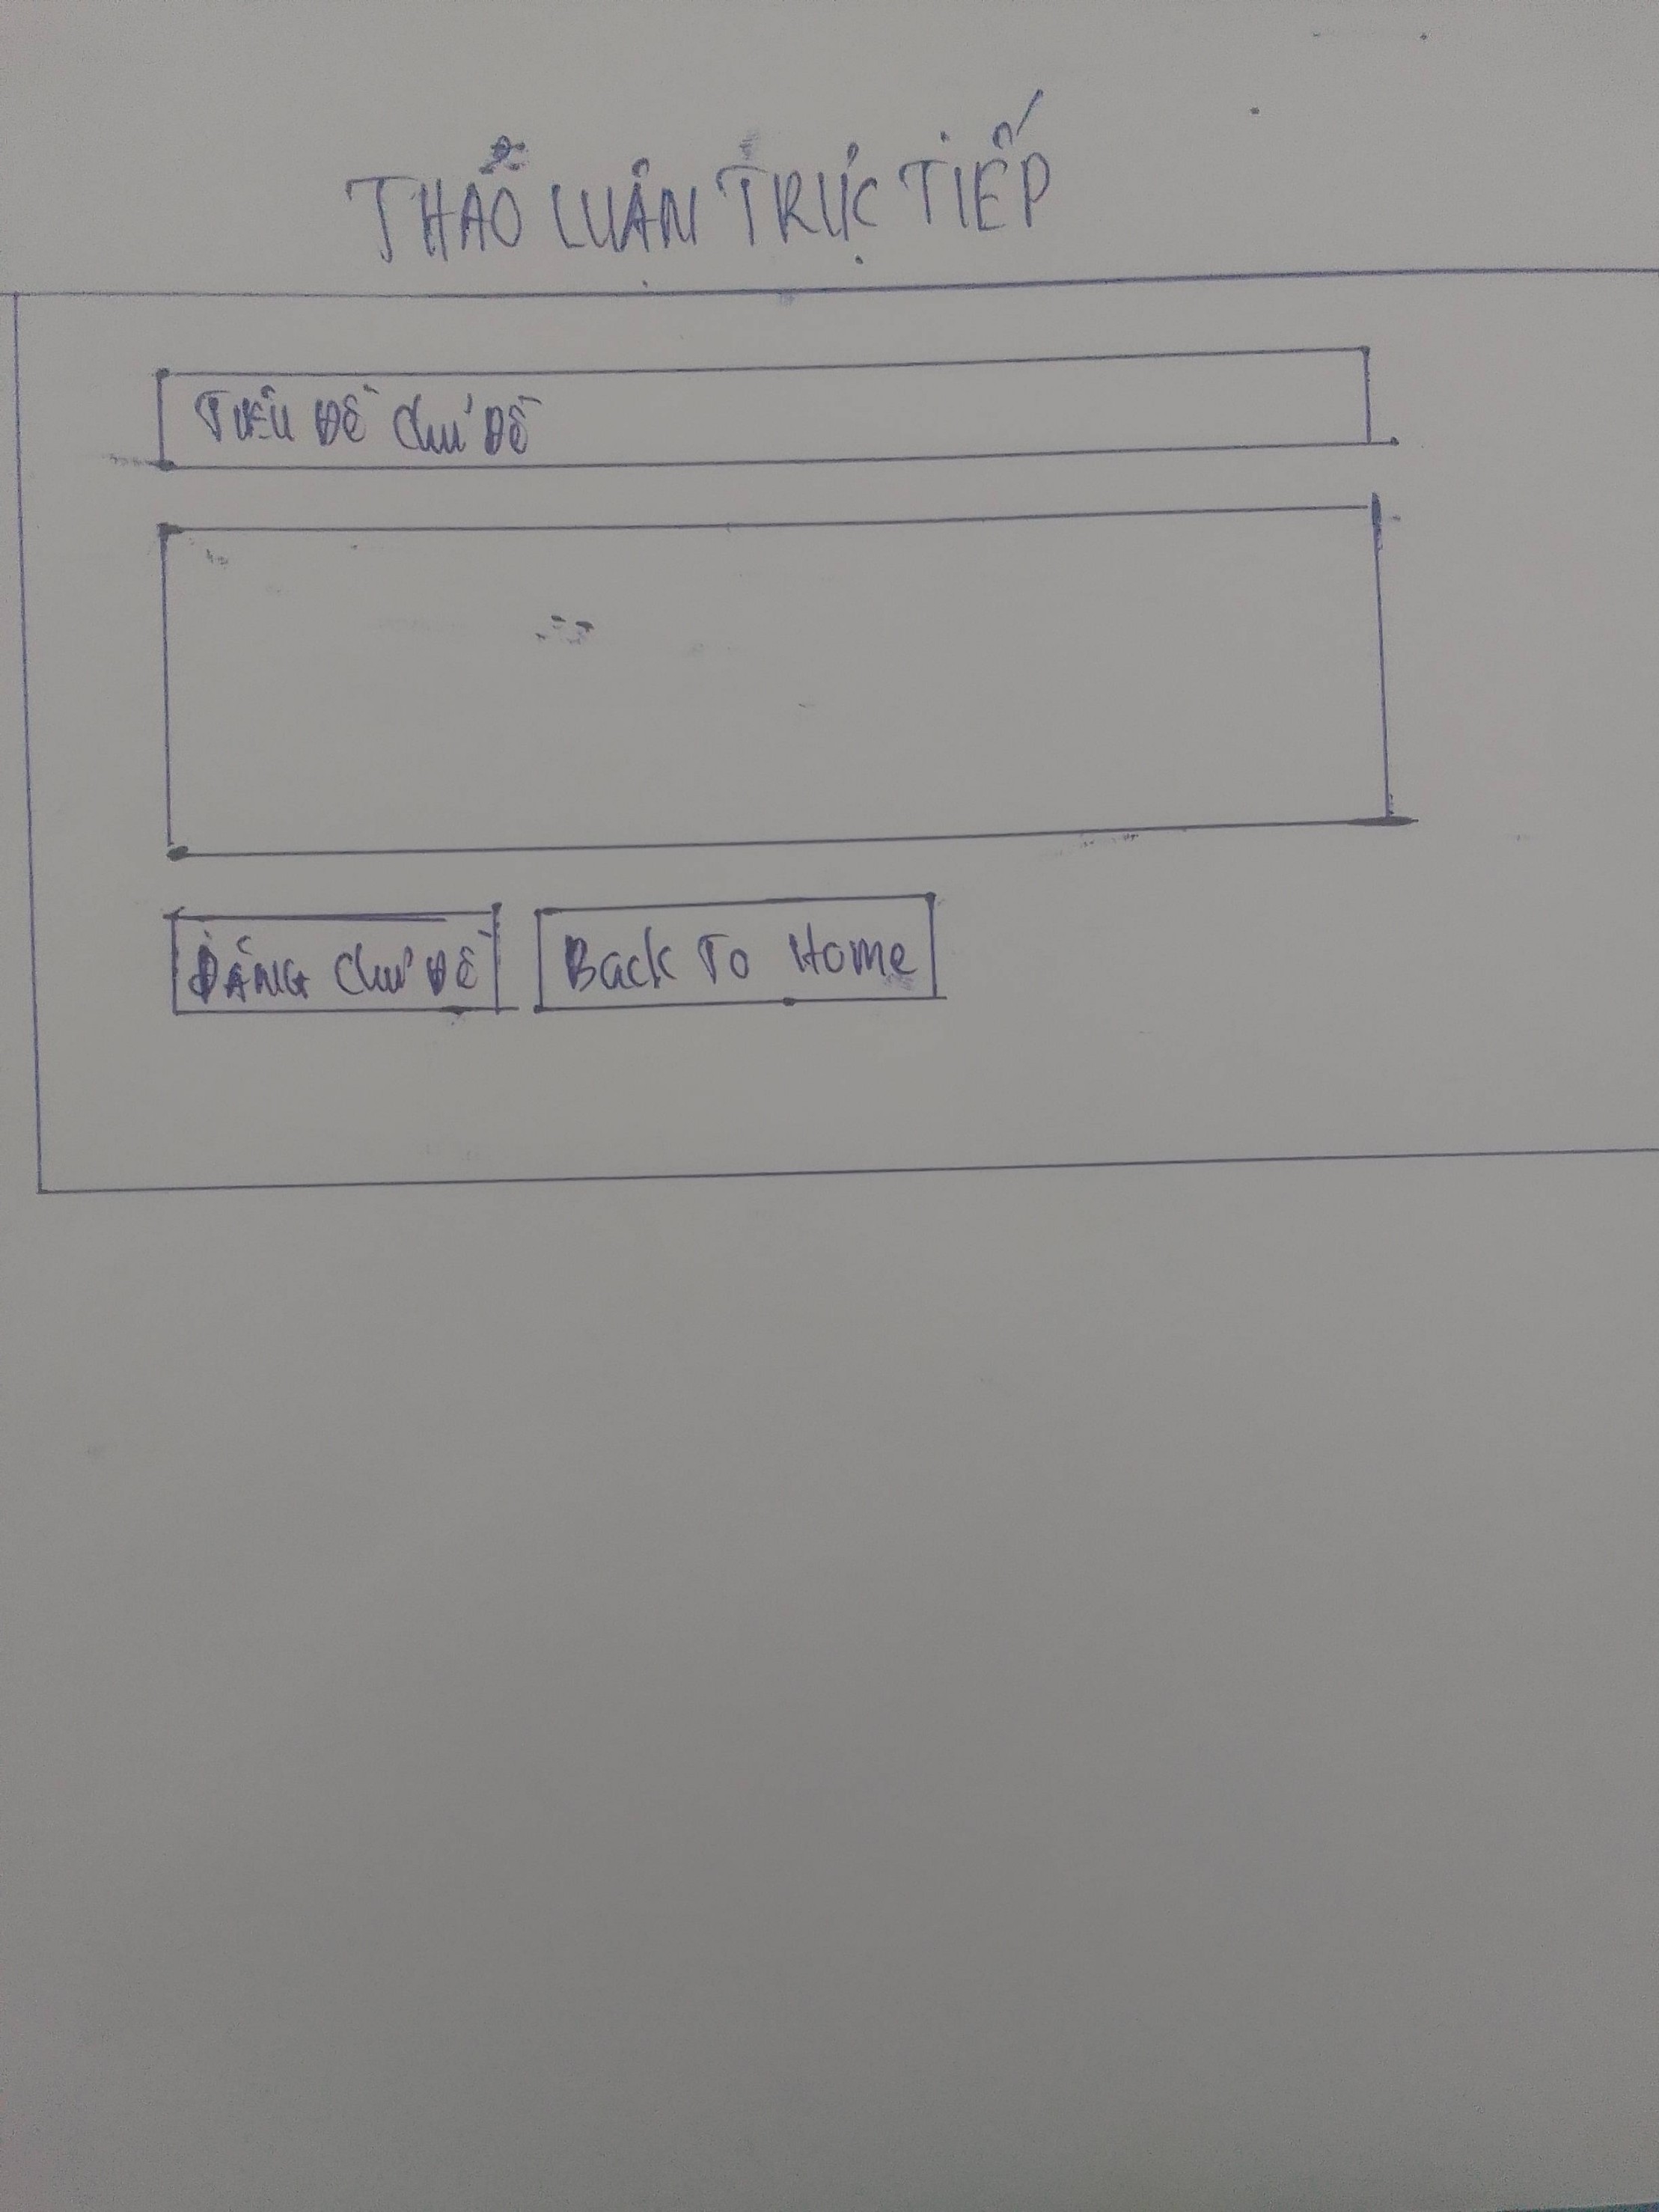 THẢO LUẬN TRỰC TIẾP
TIÊU ĐỀ CHỦ ĐỀ
ĐĂNG CHỦ ĐỀ
Back To Home